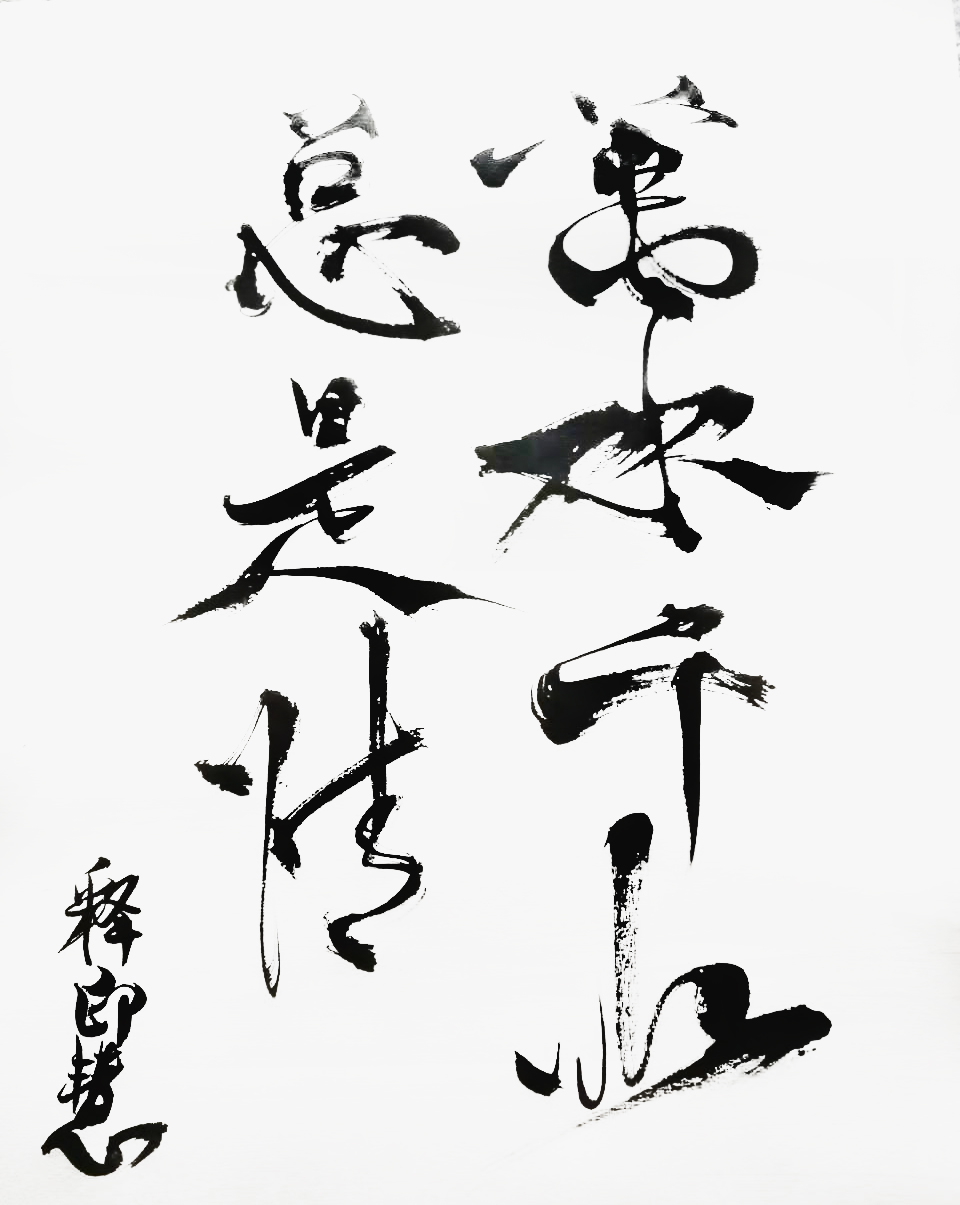 萬水千山
总是情
释印慧